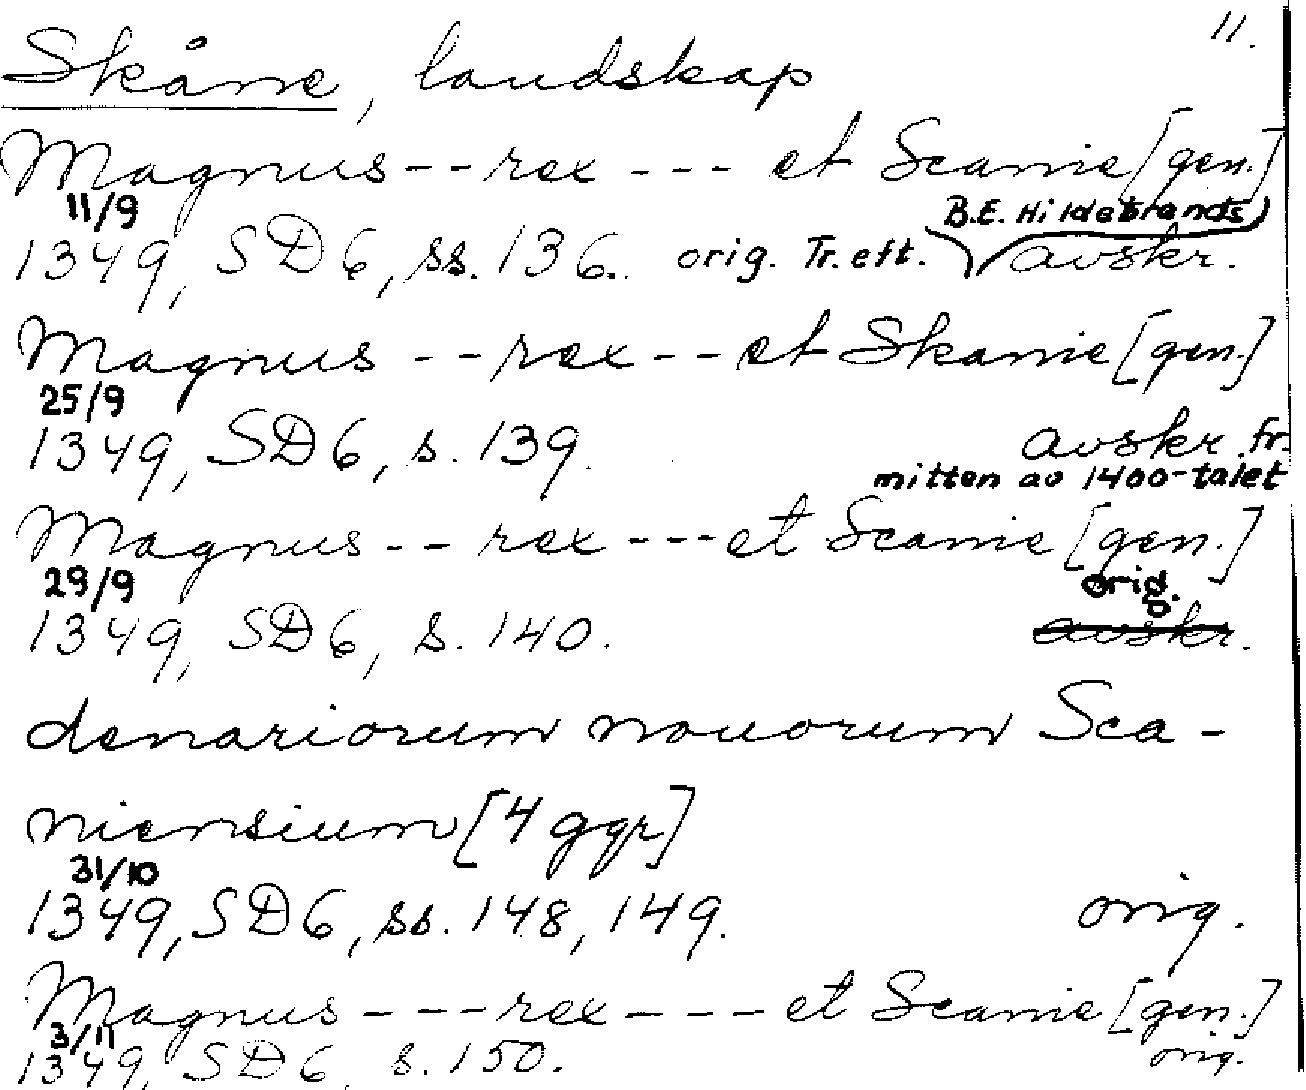 11.
Skåne, landskap
Magnus -- rex --- et Scanie [gen.]
11/9 B.E. Hildebrands
1349, SD 6, ss. 136. orig. Tr. eft. avskr.
Magnus -- rex -- et Skanie [gen.]
25/9
1349, SD 6, s. 139. avskr. fr.
mitten av 1400-talet
Magnus -- rex --- et Scanie [gen.]
29/9 orig.
1349, SD 6, s. 140. avskr.
denariorum nouorum Sca-
niensium [4 ggr]
31/10
1349, SD 6, ss. 148, 149. orig.
Magnus --- rex ---- et Scanie [gen.]
3/11 orig.
1349, SD 6, s. 150.